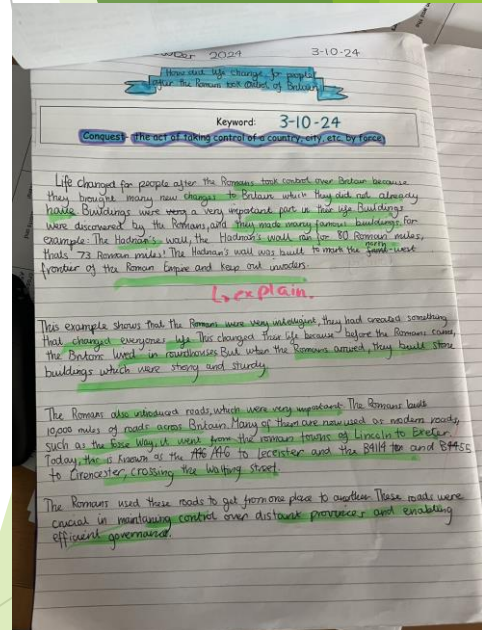 2024
3-10-24
How did life change for people
after the Romans took control of Britain
Keyword: 3-10-24
Conquest- the act of taking control of a country, city, etc. by force
Life changed for people after the Romans took control over Britain because
they brought many new changes to Britain which they did not already
have. Buildings were very a very important part in their life. Buildings
were discovered by the Romans, and they made many famous buildings. For
example: The Hadrian's wall, the Hadrian's wall ran for 80 Roman miles,
thats 73 Roman miles! The Hadrian's wall was built to mark the north-west
frontier of the Roman Empire and keep out invaders.
↳ explain.
This example shows that the Romans were very intelligint, they had created something
that changed everyones life. This changed their life because before the Romans came,
the Britons lived in roundhouses. But when the Romans arrived, they built stone
buildings which were strong and sturdy.
The Romans also introduced roads, which were very important. The Romans built
10,000 miles of roads across Britain. Many of them are now used as modern roads,
such as the Fosse Way, it went from the roman towns of Lincoln to Exeter.
Today, this is known as the A46 to Leceister and the B4114 and B4455
to Cirencester, crossing the Watling street.
The Romans used these roads to get from one place to another. These roads were
crucial in mantaining control over distant provinces and enabling
efficient governance.